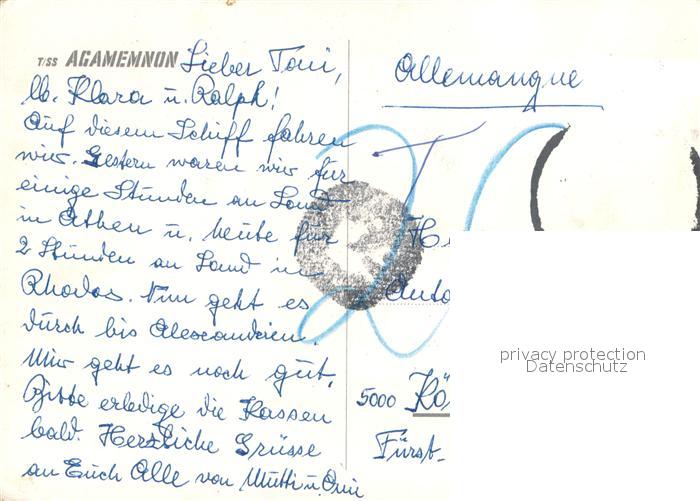 T/SS AGAMEMNON Lieber Toni,
lb. Klara u. Ralph!
Auf diesem Schiff fahren
wir. Gestern waren wir für
einige Stunden an Land
in Athen u. heute für
2 Stunden an Land in
Rhodos. Nun geht es
durch bis Alexandrien.
Mir geht es noch gut.
Bitte erledige die Kassen
bald. Herzliche Grüsse
an Euch Alle von Mutti u.
Allemangne
T
He
Anto
5000 Kö
Fürst-
privacy protection
Datenschutz